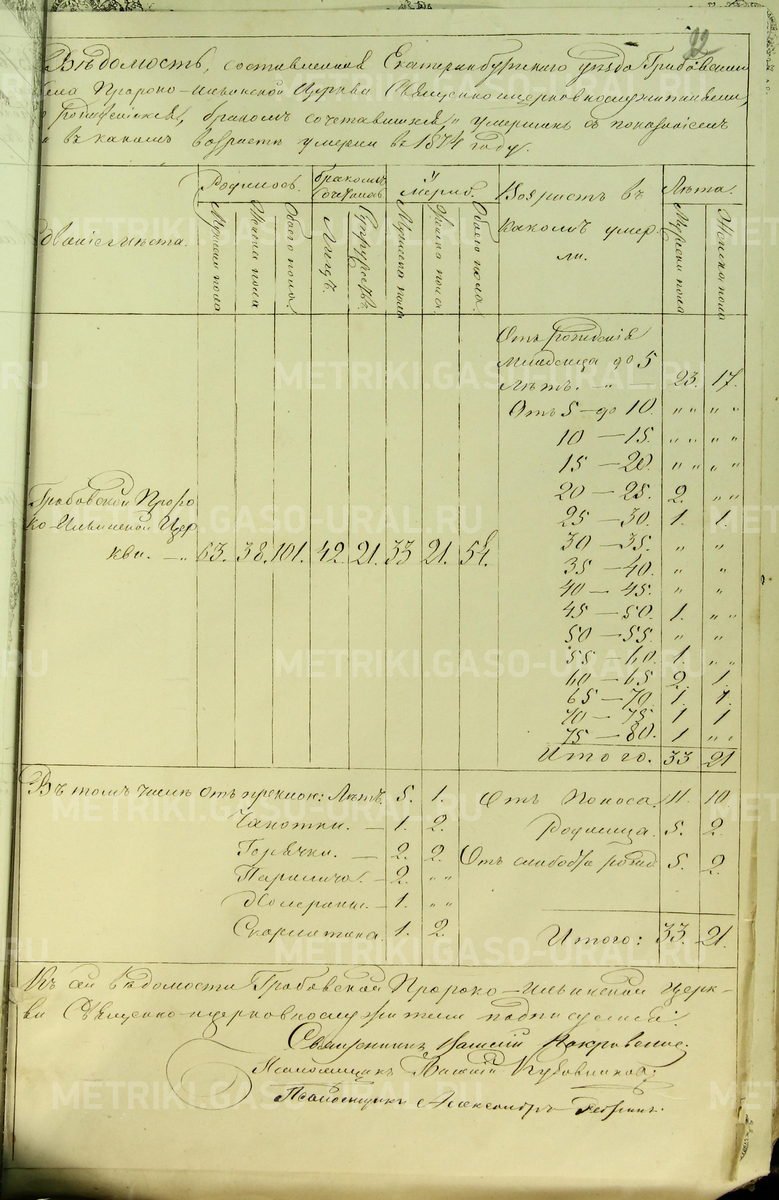 22
Вѣдомость, составленная Екатеринбургскаго уѣзда Грабовскаго
села Пророко-Ильинской Церкви Священноцерковнослужителями,
о родившихся, бракомъ сочетавшихся и умершихъ съ показаніемъ
въ какомъ возрастѣ умерли въ 1874 году.
Званіе мѣста.
Родилось.
Мужеска пола
Женска пола
Обоего пола
Бракомъ сочеталось
Лицъ.
Супружествъ.
Умерло.
Мужеска пола
Женска пола
Обоего пола.
Возрастъ въ
какомъ умер-
ли.
Лѣта.
Мужеска пола
Женска пола
Отъ рожденія
Младенца до 5
Лѣтъ. 23. 17.
Отъ 5 – до 10. „ „ „ „
10 – 15. „ „ „ „
15 – 20. „ „ „ „
20 – 25. 2. „ „
25 – 30. 1. 1.
30 – 35. „ „
35 – 40. „ „
40 – 45. „ „
45 – 50. 1. „ „
50 – 55. „ „
55 – 60. 1. „ „
60 – 65 2. 1.
65 – 70. 1. 1.
70 – 75. 1 1
75 – 80. 1 „ „
Итого. 33 21
Грабовской Проро
ко-Ильинской Цер
кви. – „ 63. 38. 101. 42. 21. 33 21. 54.
Въ томъ числѣ отъ преклон: Лѣтъ. 5. 1.
Чахотки. – 1. 2.
Горячки. – 2. 2.
Паралича. – 2. „ „
Холерины. – 1. „ „
Скарлатина. 1. 2.
Отъ Поноса. 11. 10
Родимца. 5. 2.
Отъ слабости рожд 5. 2.
Итого: 33. 21.
Къ сей вѣдомости Грабовской Пророко-Ильинской Церк-
ви Священно-церковнослужители подписуемся:
Священникъ Василій Покровскій.
Псаломщикъ
Псаломщикъ Александръ
METRIKI.GASO-URAL.RU